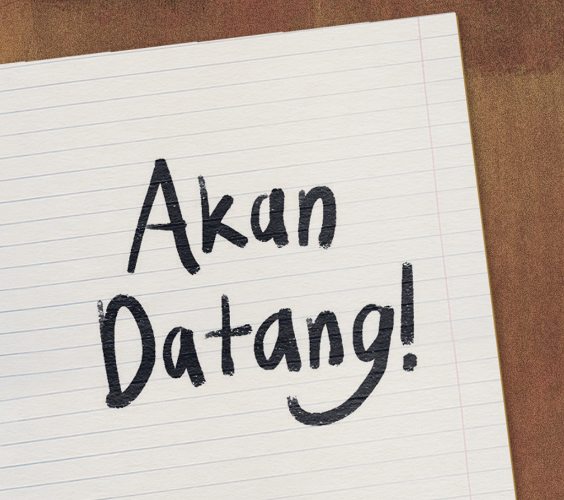 Akan
Datang!